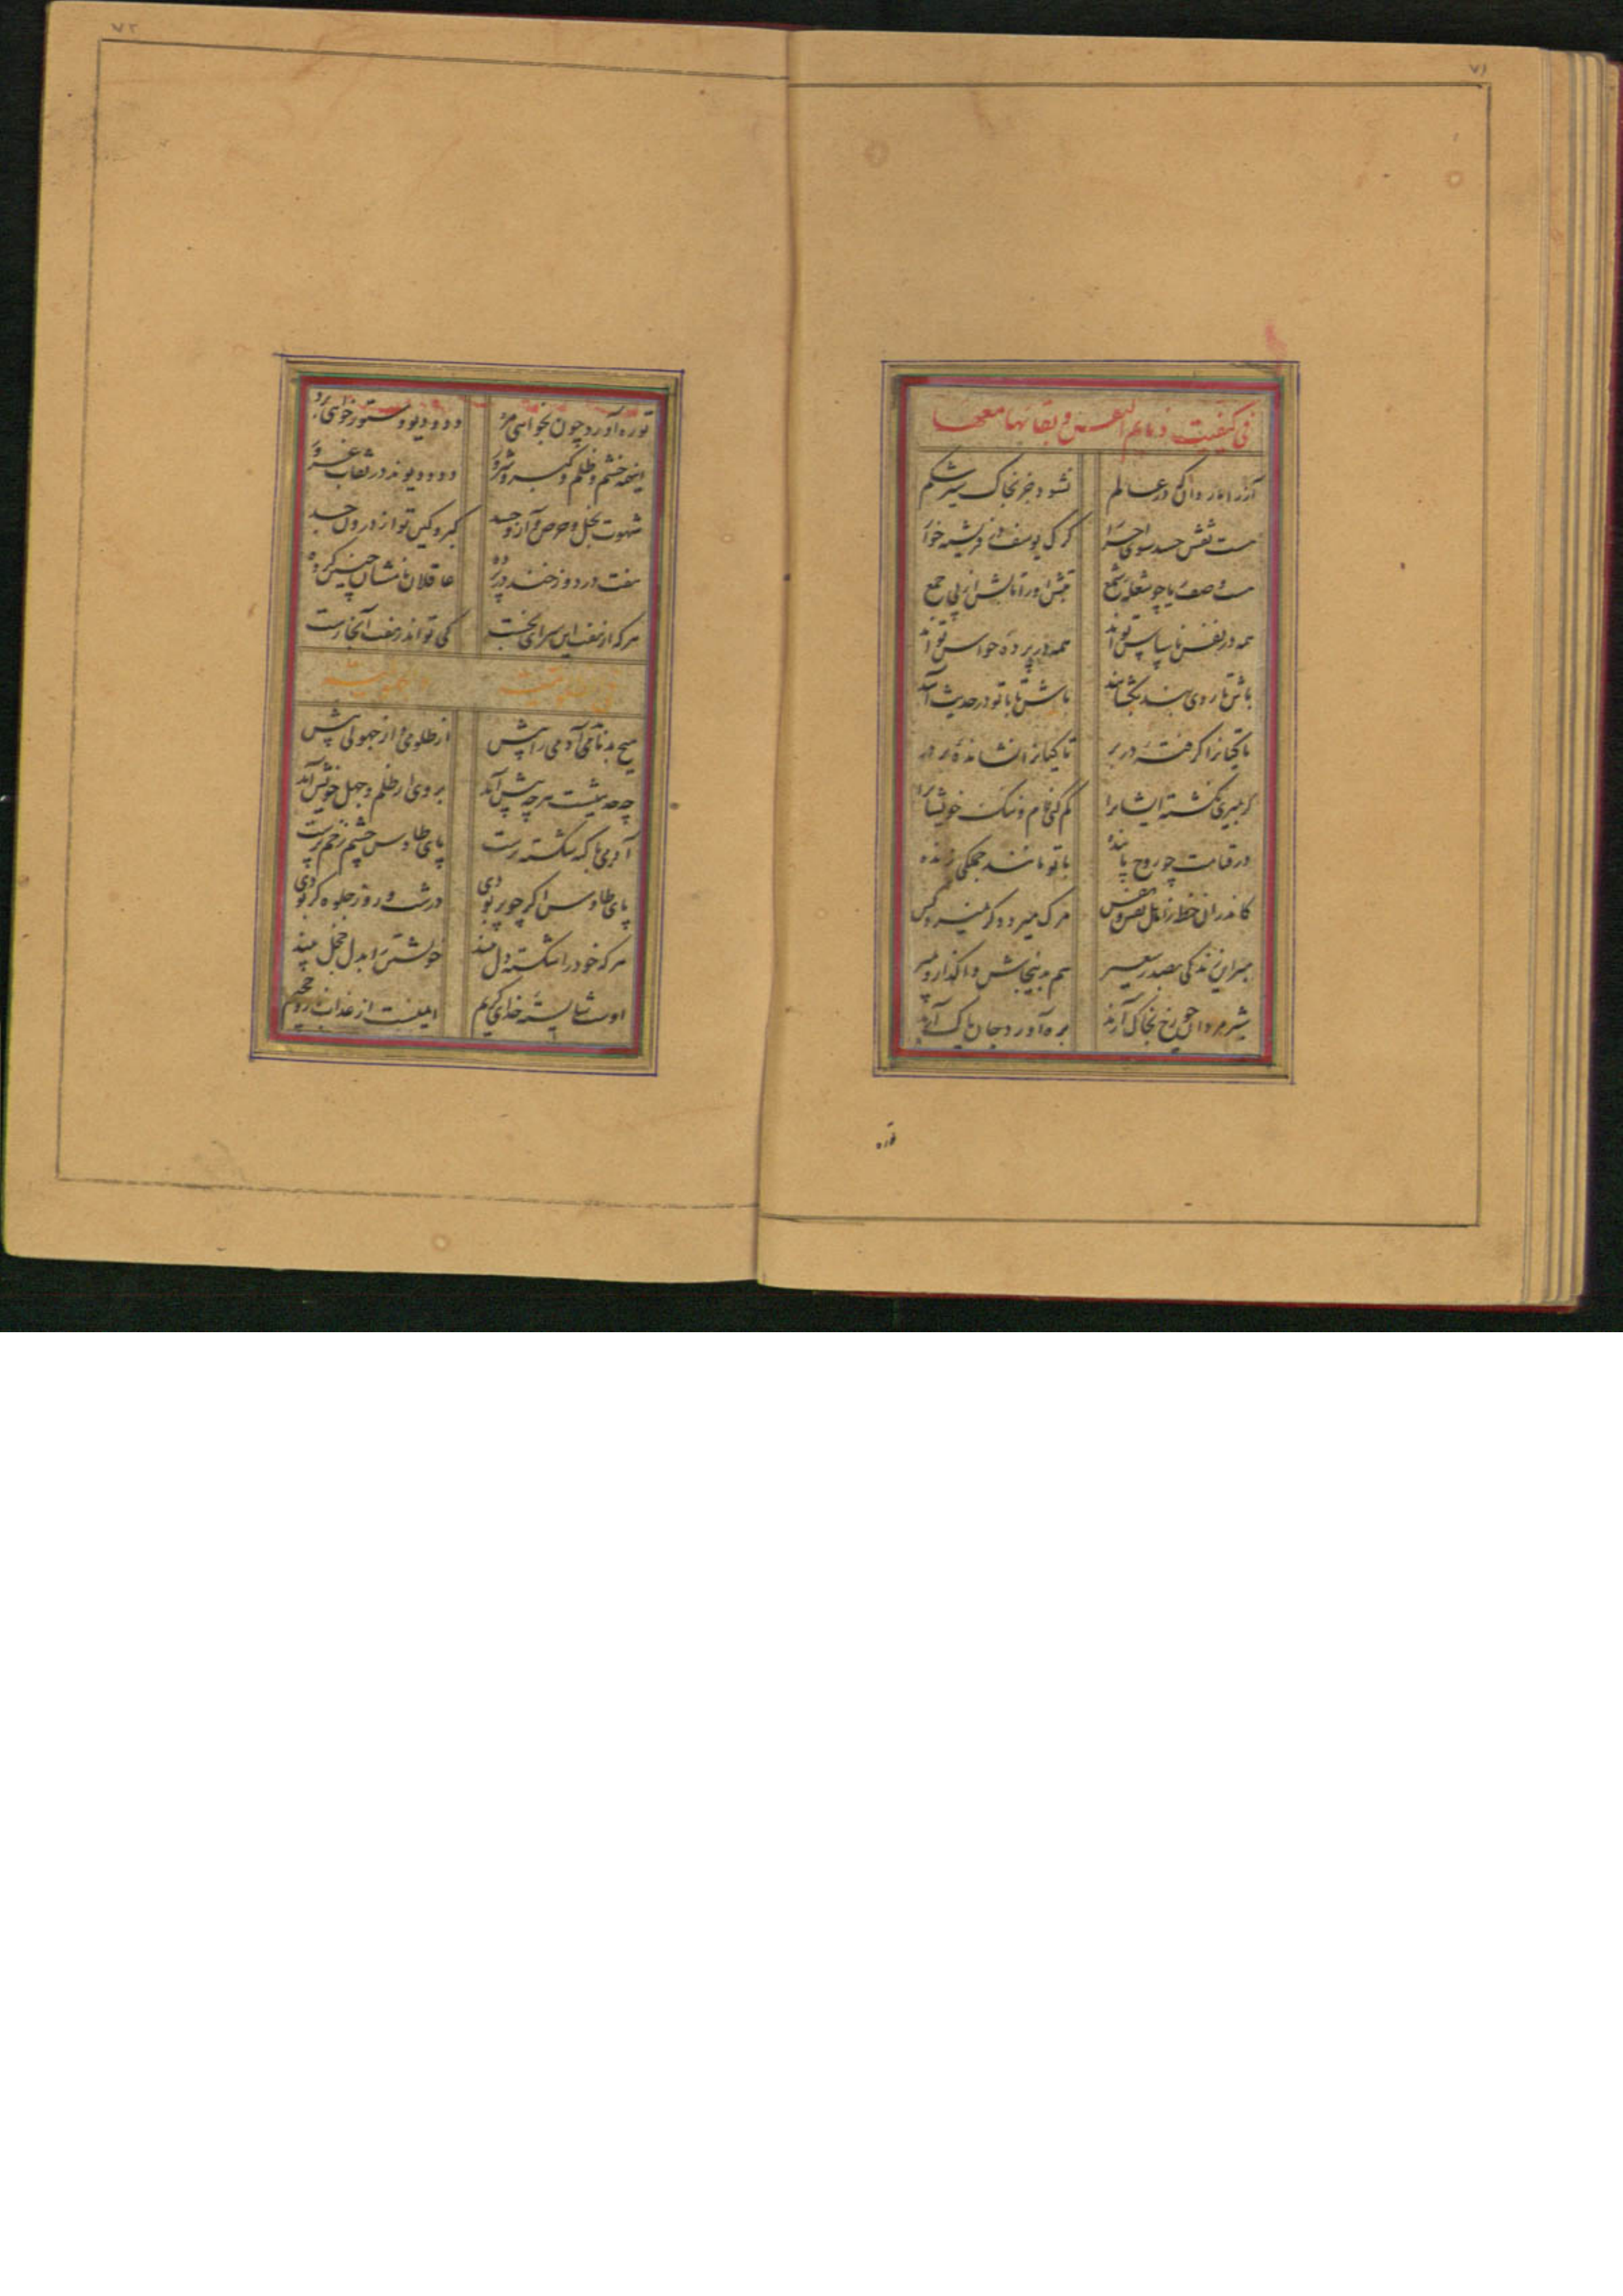 ۷۱
فی کیفیت ذمایم النفس و بقائها معها
آز را باز دان که در عالم نشود جز بخاک سیر شکم
هست نقش حسد سوی احرار گرگ یوسف فرشته خوار
هست وصف ریا چو شعله شمع تبش او را تابش از پی جمع
همه در نفس ناسپاس تو اند همه در پرده حواس تو اند
باش تا روی بند بگشایند باش تا با تو در حدیث آیند
تا کیانرا گرفتهٔ در بر تا کیانرا نشاندهٔ بر در
گر بمیری نکشته ایشانرا گم کنی نام و ننگ خویشانرا
در قیامت چو روح پاینده با تو مانند جملگی زنده
کاندران خطه ز اهل نفس و نفس مرگ میرد دگر نمیرد کس
ببر این زندگی بصدر سعیر هم بدینجاش واگذار و بمیر
شیر مردان چو رخ بخاک آرند ره آورد جان پاک آرند
توره
۷۲
تو ره آورد چون بخواهی مرد دد و دیو و ستور خواهی برد
اینهمه خشم و ظلم و کبر و شرور دد و دیوند در نقاب غرور
شهوت بخل و حرص و آز و حسد کبر و کین تو از درون جسد
هفت در دوزخند در پرده عاقلان نامشان چنین کرده
هرکه از هفت این سرای بجست کی تواند ز هفت آنجا رست
هیچ بدنامی آدمی را پیش از ظلومی و از جهولی پیش
چه حدیثست هر چه پیش آید بر وی از ظلم و جهل خویش آید
آدمی با گنه شکسته‌ترست پای طاوس چشم زخم پرست
پای طاوس اگر چو پر بودی در شب و روز جلوه‌گر بودی
هرکه خود را شکسته دل بیند خویشتن را بدل خجل بیند
اوست شایسته خدای کریم ایمنست از عذاب روز جحیم